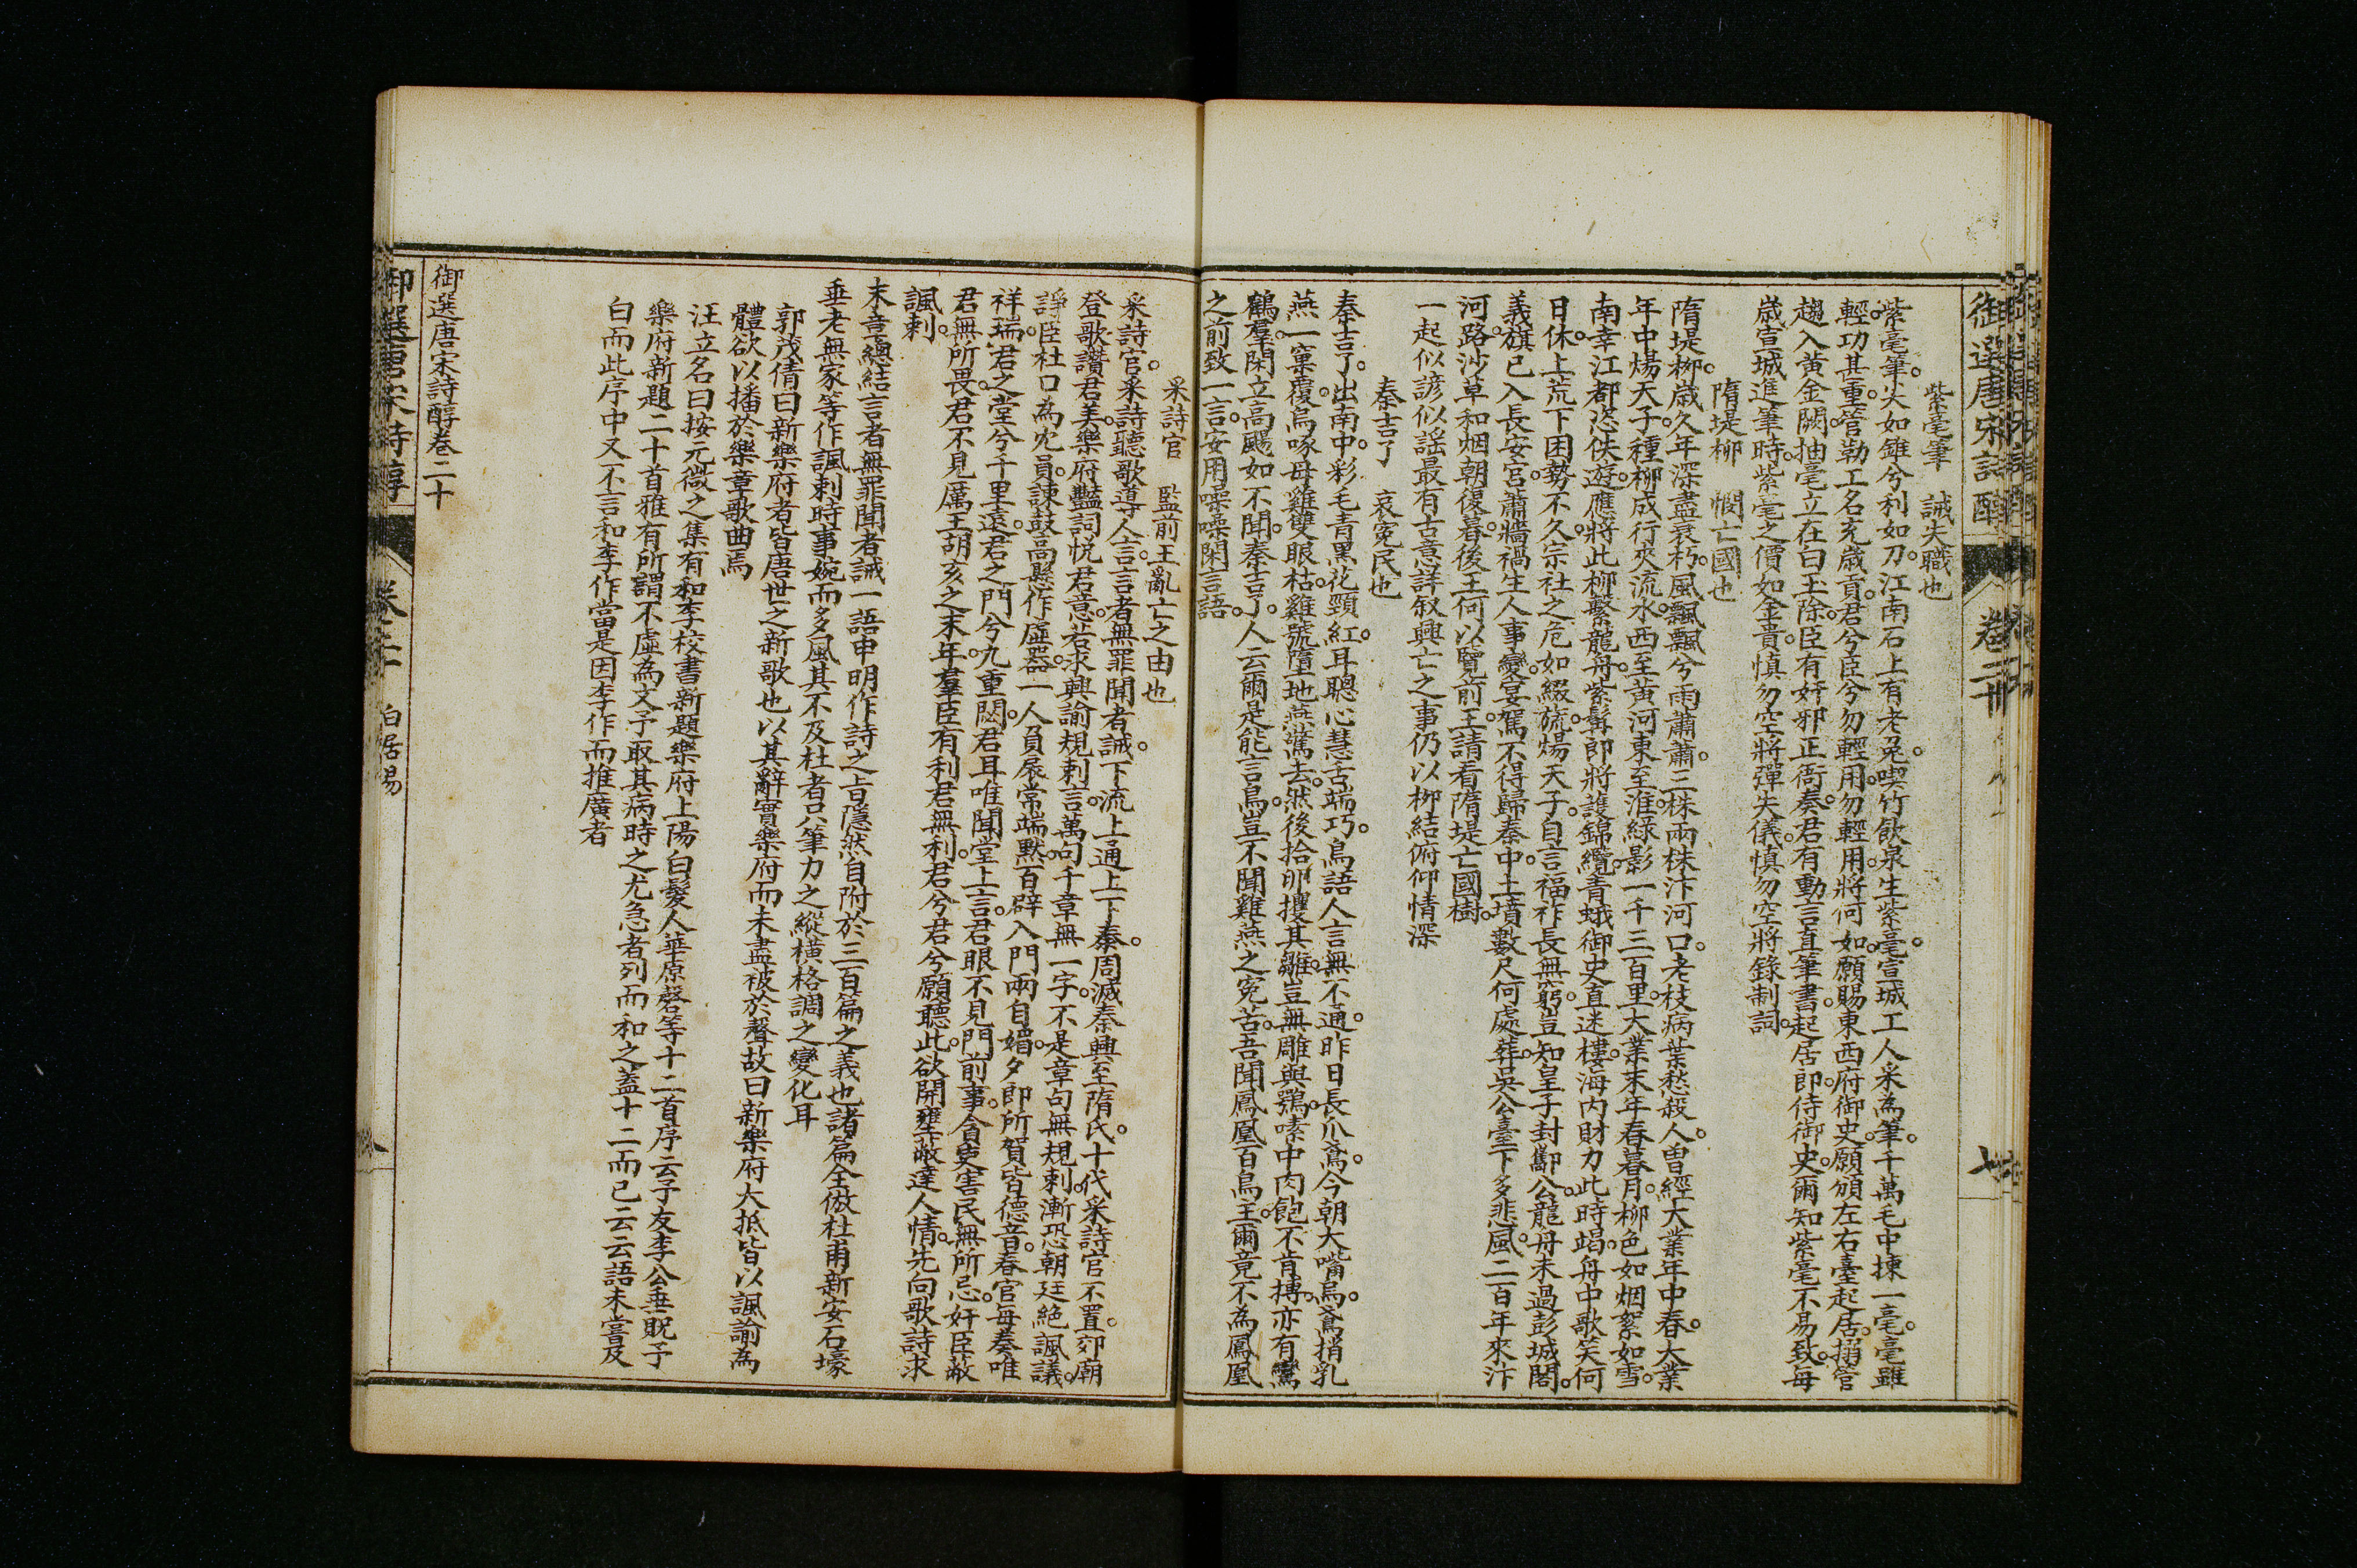 御選唐宋詩醇
卷二十
七
紫毫筆 誡失職也
紫毫筆尖如錐兮利如刀江南石上有老兔喫竹飲泉生紫毫宣城工人采為筆千萬毛中揀一毫毫雖
輕功甚重管勒工名充歲貢君兮臣兮勿輕用勿輕用將何如願賜東西府御史願頒左右臺起居搦管
趨入黃金闕抽毫立在白玉除臣有奸邪正衙奏君有動言直筆書起居郎侍御史爾知紫毫不易致每
歲宣城進筆時紫毫之價如金貴慎勿空將彈失儀慎勿空將錄制詞
隋堤柳 憫亡國也
隋堤柳歲久年深盡衰朽風飄飄兮雨蕭蕭三株兩株汴河口老枝病葉愁殺人曾經大業年中春大業
年中煬天子種柳成行夾流水西至黃河東至淮綠影一千三百里大業末年春暮月柳色如烟絮如雪
南幸江都恣佚遊應將此柳繫龍舟紫髯郎將護錦纜青蛾御史直迷樓海內財力此時竭舟中歌笑何
日休上荒下困勢不久宗社之危如綴旒煬天子自言福祚長無窮豈知皇子封酅公龍舟未過彭城閣
義旗已入長安宮蕭牆禍生人事變宴駕不得歸秦中土墳數尺何處葬吳公臺下多悲風二百年來汴
河路沙草和烟朝復暮後王何以鑒前王請看隋堤亡國樹
一起似諺似謠最有古意詳叙興亡之事仍以柳結俯仰情深
秦吉了 哀寃民也
秦吉了出南中彩毛青黑花頸紅耳聰心慧舌端巧鳥語人言無不通昨日長爪鳶今朝大嘴烏鳶捎乳
燕一窠覆烏啄母雞雙眼枯雞號墮地燕驚去然後拾卵攫其雛豈無鵰與鶚嗉中肉飽不肯搏亦有鸞
鶴羣閑立高颺如不聞秦吉了人云爾是能言鳥豈不聞雞燕之寃苦吾聞鳳凰百鳥主爾竟不為鳳凰
之前致一言安用噪噪閑言語
采詩官 監前王亂亡之由也
采詩官采詩聽歌導人言言者無罪聞者誡下流上通上下泰周滅秦興至隋氏十代采詩官不置郊廟
登歌讚君美樂府豔詞悅君意若求興諭規刺言萬句千章無一字不是章句無規刺漸恐朝廷絕諷議
諍臣杜口為宂員諫鼓高懸作虛器一人負扆常端默百辟入門兩自媚夕郎所賀皆德音春官每奏唯
祥瑞君之堂兮千里遠君之門兮九重閟君耳唯聞堂上言君眼不見門前事貪吏害民無所忌奸臣蔽
君無所畏君不見厲王胡亥之末年羣臣有利君無利君兮君兮願聽此欲開壅蔽達人情先向歌詩求
諷刺
末章總結言者無罪聞者誡一語申明作詩之旨隱然自附於三百篇之義也諸篇全倣杜甫新安石壕
垂老無家等作諷刺時事婉而多風其不及杜者只筆力之縱橫格調之變化耳
郭茂倩曰新樂府者皆唐世之新歌也以其辭實樂府而未盡被於聲故曰新樂府大抵皆以諷諭為
體欲以播於樂章歌曲焉
汪立名曰按元微之集有和李校書新題樂府上陽白髮人華原磬等十二首序云予友李公垂貺予
樂府新題二十首雅有所謂不虛為文予取其病時之尤急者列而和之蓋十二而已云云語未嘗及
白而此序中又不言和李作當是因李作而推廣者
御選唐宋詩醇卷二十
御選唐宋詩醇
白居易